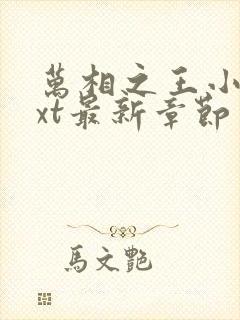 萬相之王小
xt最新章節
馬文艷